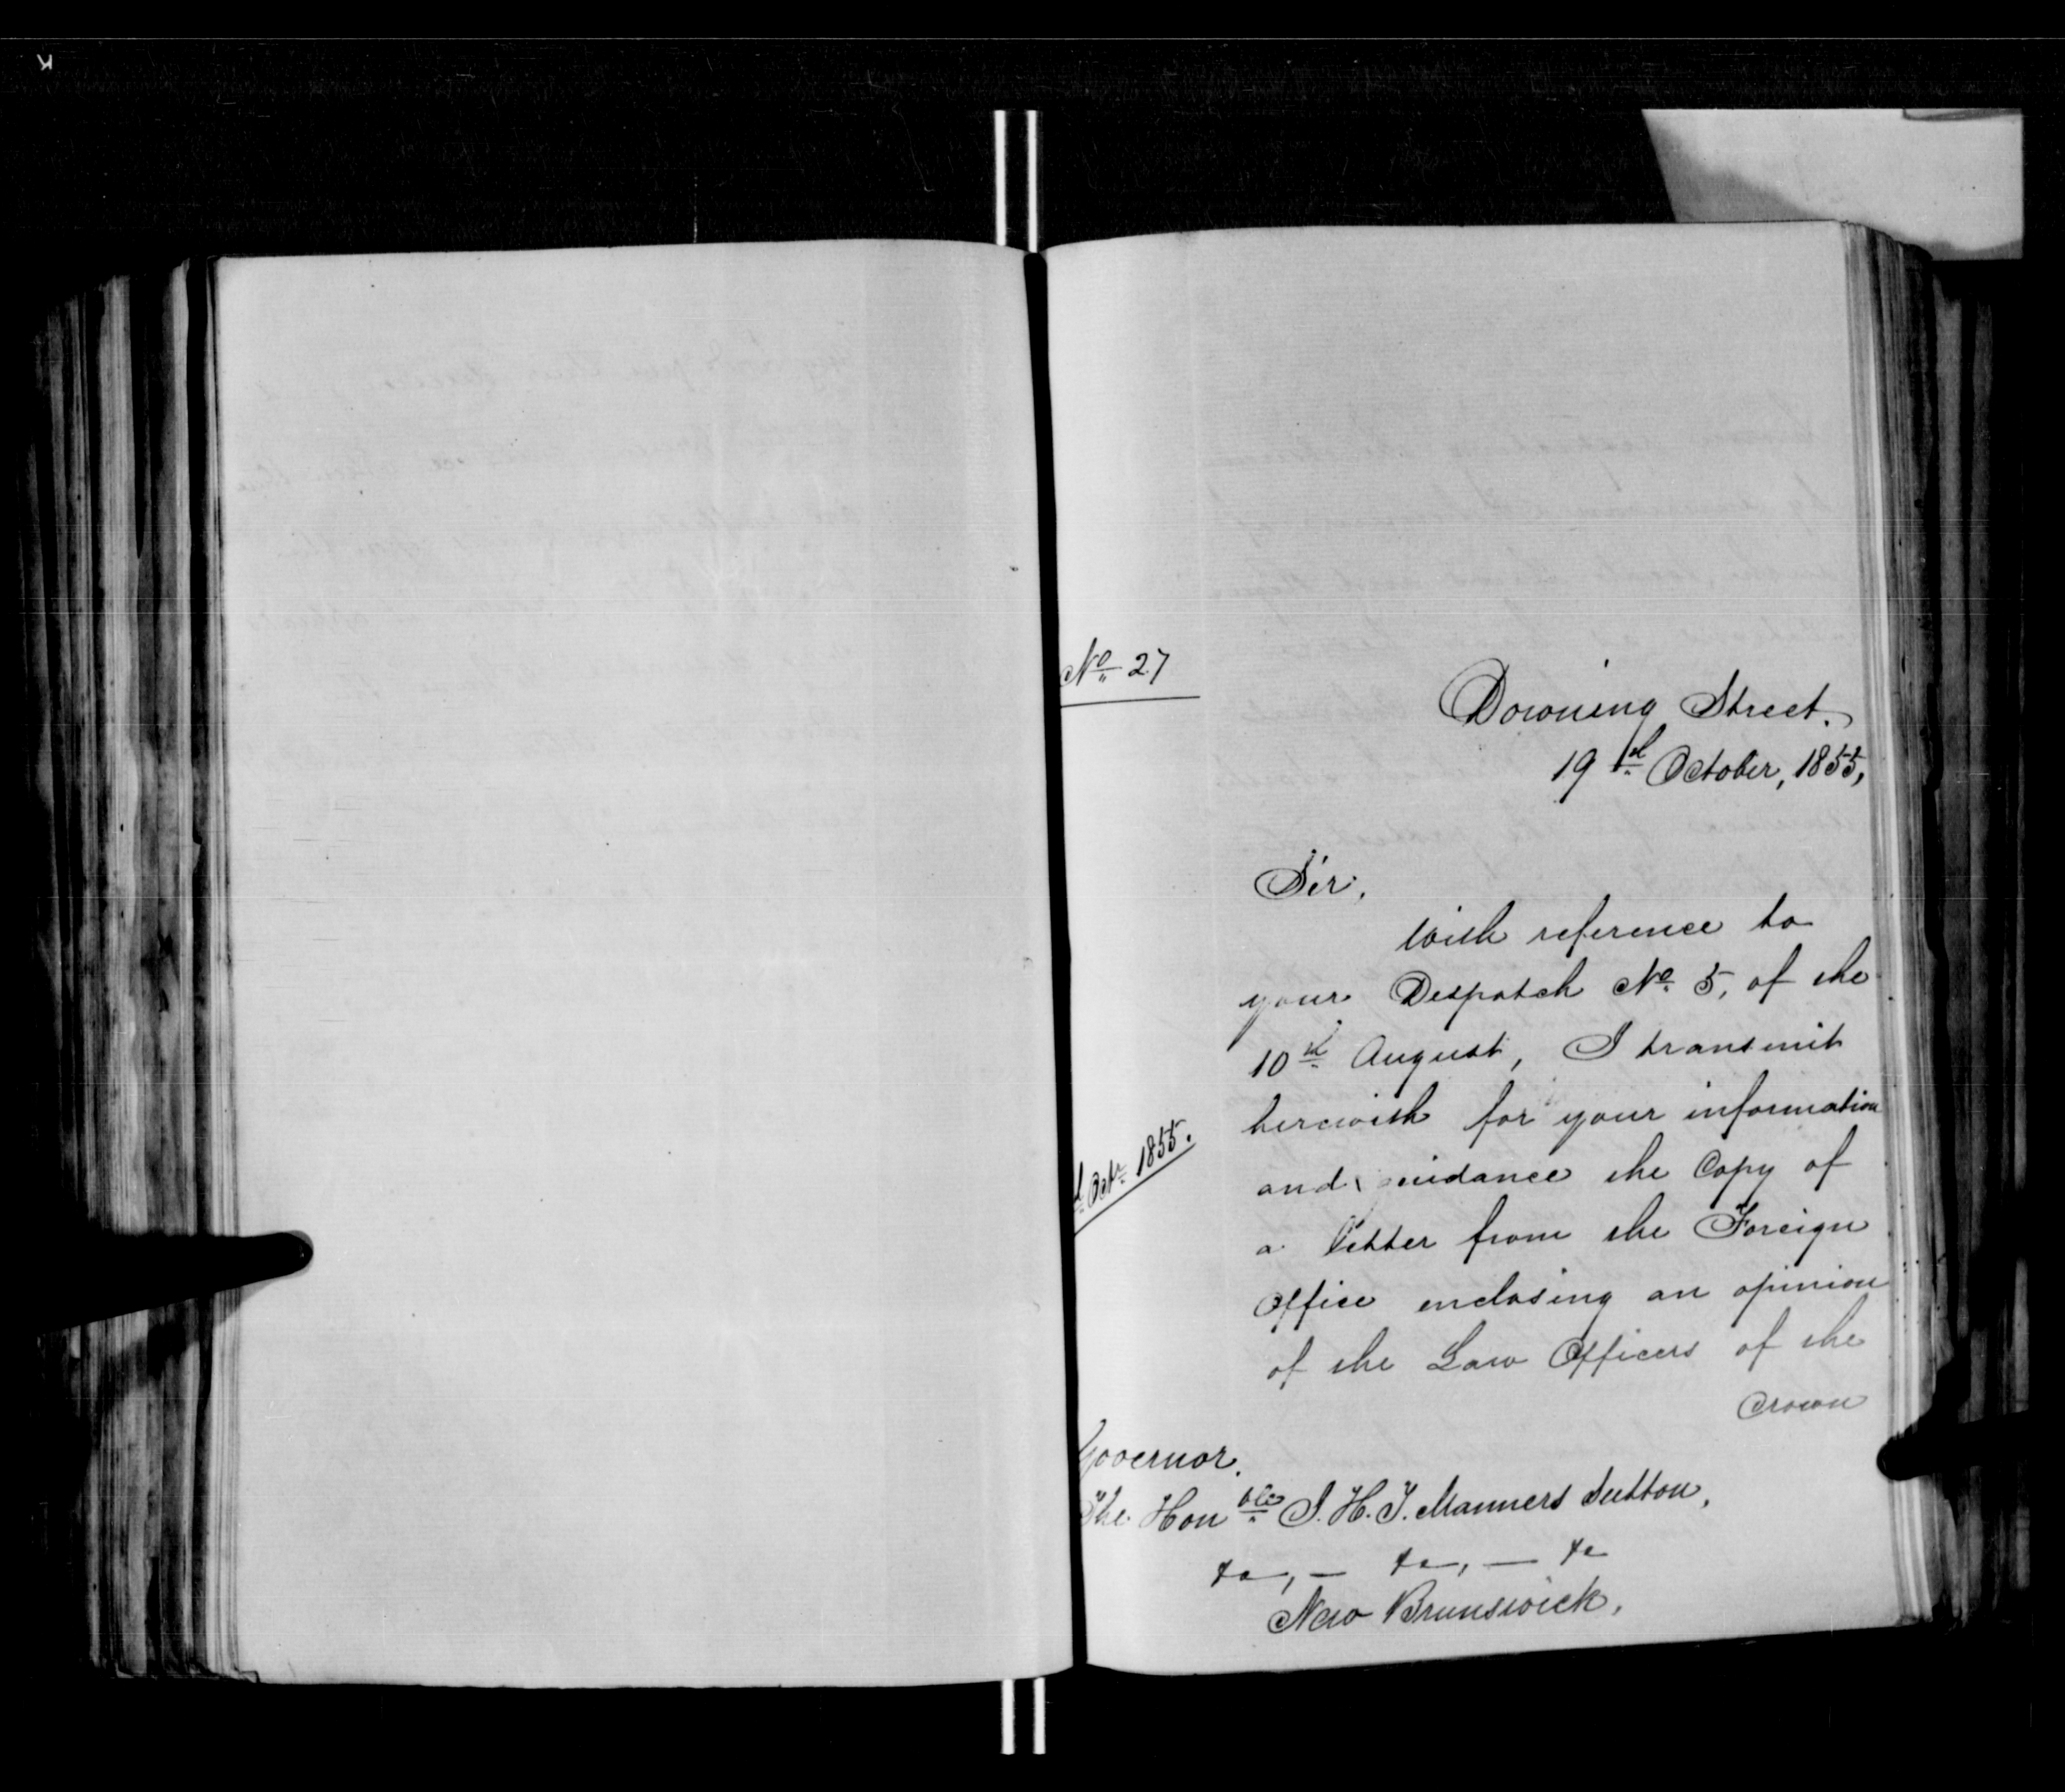 No 27
Downing Street.
19th October, 1855,
Sir,
With reference to
your Despatch No 5, of the
10th August, I transmit
herewith for your information
and guidance the Copy of
Octr 1855.
a letter from the Foreign
Office enclosing an opinion
of the Law Officers of the
Crown
Governor.
The Honble J. H. T. Manners Sutton,
&c, — &c, — &c
New Brunswick,